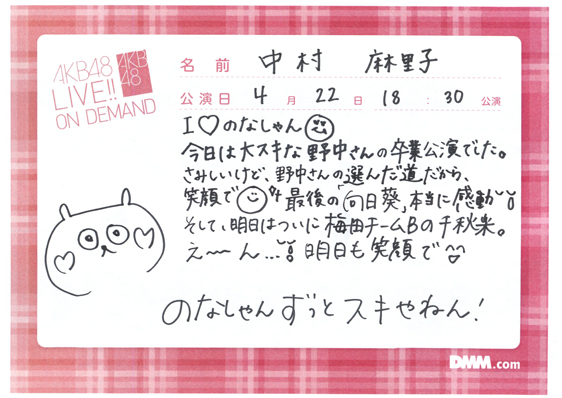 AKB48
LIVE!!
ON DEMAND
AKB
48
名前 中村 麻里子
公演日 4月22日 18:30公演
I♡のなしゃん
今日は大スキな野中さんの卒業公演でした。
さみしいけど、野中さんの選んだ道だから、
笑顔で 最後の「向日葵」本当に感動
そして、明日はついに梅田チームBの千秋楽。
え〜ん… 明日も笑顔で
のなしゃんずっとスキやねん!
DMM.com